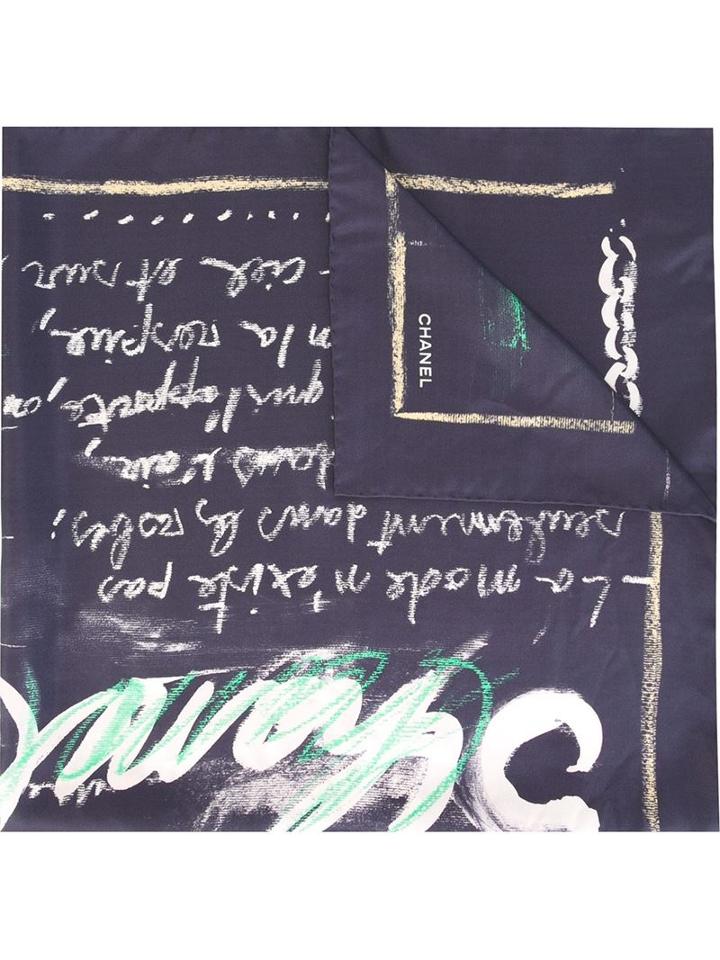 Chane
- La mode n'existe pas
seulement dans les robes;
dans l'air,
qui l'apporte, on
la respire,
ciel et sur
CHANEL